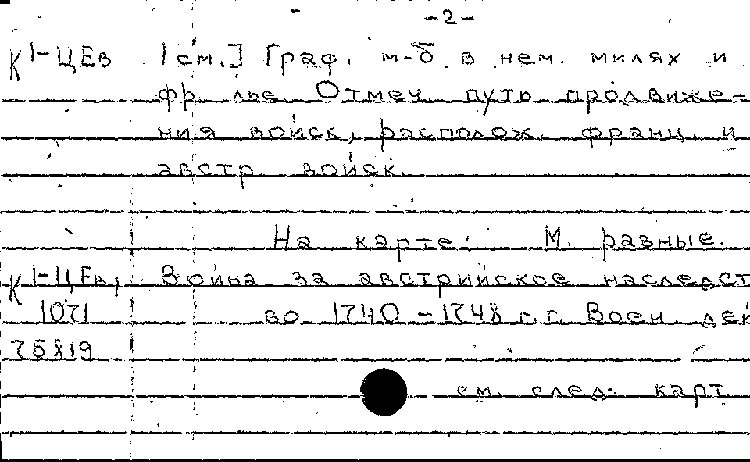 -2-
К 1-ЦЕв [см.] Граф. м-б в нем. милях и
фр. лье Отмеч. путь продвиже-
ния войск, располож. франц. и
австр. войск.
На карте: М. разные.
К 1-ЦЕв, Война за австрийское наследст
1071 во 1740-1748 г.г. Воен. дей
75819
см. след. карт